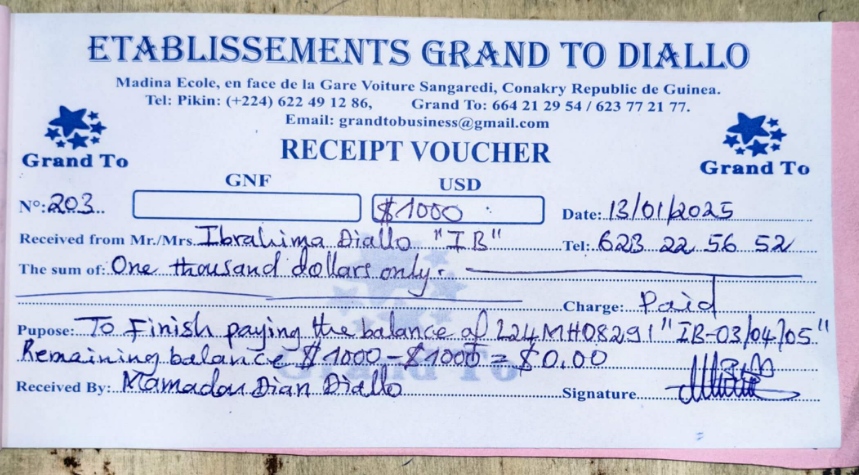 ETABLISSEMENTS GRAND TO DIALLO
Madina Ecole, en face de la Gare Voiture Sangaredi, Conakry Republic de Guinea.
Tel: Pikin: (+224) 622 49 12 86, Grand To: 664 21 29 54 / 623 77 21 77.
Email: grandtobusiness@gmail.com
Grand To
RECEIPT VOUCHER
Grand To
GNF USD
N°: 203 $1000 Date: 13/01/2025
Received from Mr./Mrs. Ibrahima Diallo "IB" Tel: 623 22 56 52
The sum of: One thousand dollars only.
Charge: Paid
Pupose: To Finish paying the balance of L24MH08291 "IB-03/04/05"
Remaining balance $1000 - $1000 = $0.00
Received By: Mamadou Dian Diallo Signature